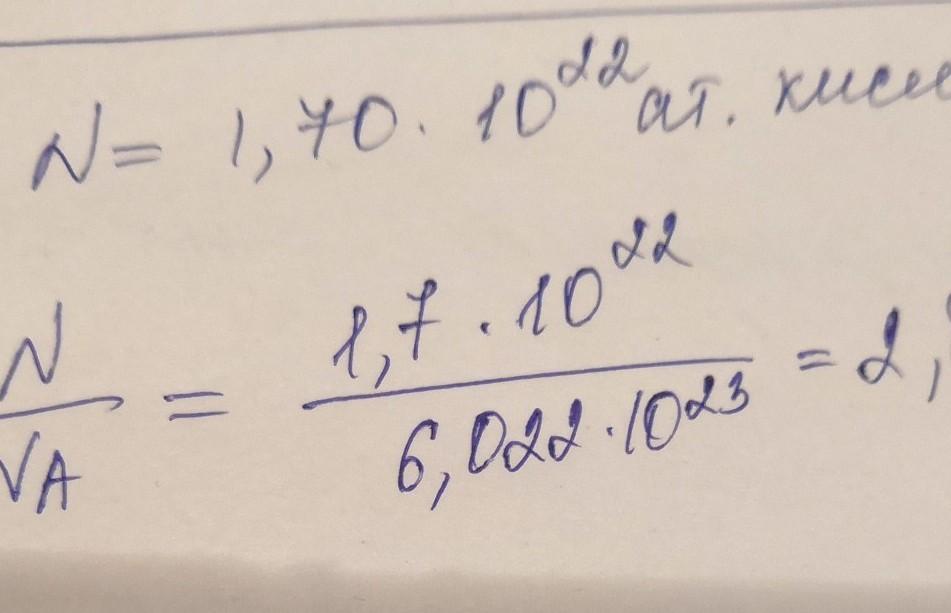 N = 1,70 · 10²² ат. кисл
N/N_A = 1,7 · 10²² / 6,022 · 10²³ = 2,